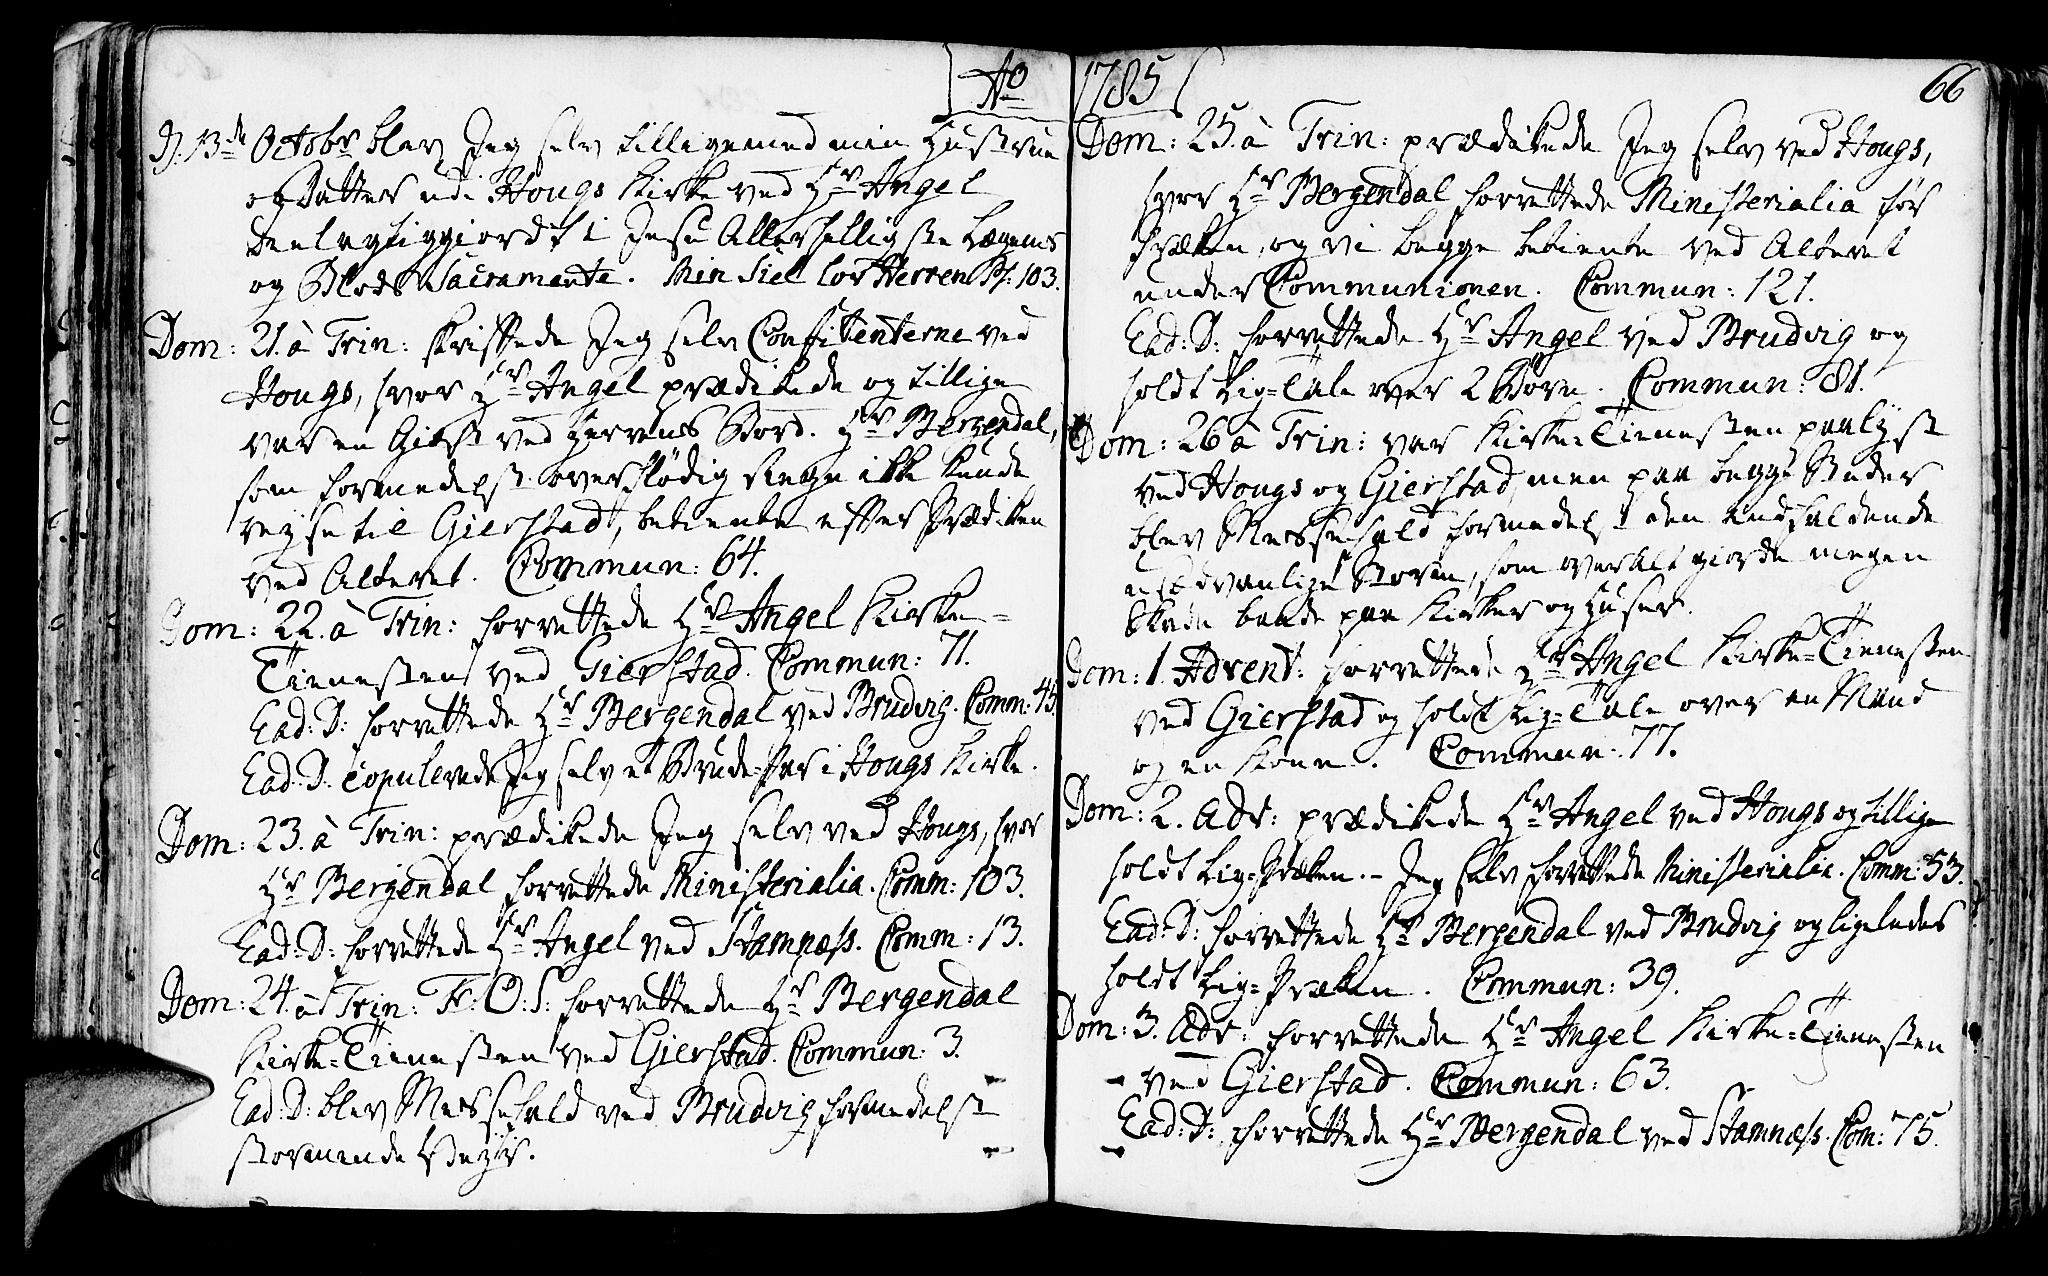 Ao 1785
66
D. 13de Octobr blev Jeg selv tilligemed min Hustrue
og Datter udi Hougs Kirke ved Hr Angel
deelagtiggiordt i Jesu Allerhelligste Legems
og Blods Sacramente. Min Siel lov Herren Ps: 103.
Dom: 21. à Trin: skriftede Jeg selv Confitenterne ved
Hougs, hvor Hr Angel prædikede og tillige
var en Giest ved Herrens Bord. Hr Bergendal,
som formedelst overflødig Regn ikke kunde
reyse til Gierstad, betiente efter Prædiken
ved Alteret. Commun: 64.
Dom: 22. à Trin: forrettede Hr Angel Kirke-
Tienesten ved Gierstad. Commun: 71.
Ead: D: forrettede Hr Bergendal ved Brudvig. Comm: 45.
Ead: D: copulerede Jeg selv et Brude-Par i Hougs Kirke.
Dom: 23. à Trin: prædikede Jeg selv ved Hougs, hvor
Hr Bergendal forrettede Ministerialia. Comm: 103.
Ead: D: forrettede Hr Angel ved Stamnæss. Comm: 13.
Dom: 24. à Trin: Fr: O: S: forrettede Hr Bergendal
Kirke-Tienesten ved Gierstad. Commun: 3.
Ead: D: blev Messefald ved Brudvig formedelst
stormende Veyr.
Dom: 25. à Trin: prædikede Jeg selv ved Hougs,
hvor Hr Bergendal forrettede Ministerialia før
Præken, og vi begge betiente ved Alteret
under Communionen. Commun: 121.
Ead: D: forrettede Hr Angel ved Brudvig og
holdt Lig-Tale over 2 Børn. Commun: 81.
Dom: 26 à Trin: var Kirke-Tienesten paalyst
ved Hougs og Gierstad, men paa begge Steder
blev Messefald formedelst den indfaldende
usædvanlige Storm, som overalt giorde megen
Skade baade paa Kirker og Huser.
Dom: 1. Advent: forrettede Hr Angel Kirke-Tienesten
ved Gierstad og holdt Lig-Tale over en Mand
og en Kone. Commun: 77.
Dom: 2. Adv: prædikede Hr Angel ved Hougs og tillige
holdt Lig-Præken. - Jeg selv forrettede Ministerialia. Comm: 53.
Ead: D: forrettede Hr Bergendal ved Brudvig og ligeledes
holdt Lig-Præken. Commun: 39.
Dom: 3. Adv: forrettede Hr Angel Kirke-Tienesten
ved Gierstad. Commun: 63.
Ead: D: forrettede Hr Bergendal ved Stamnæss. Com: 75.